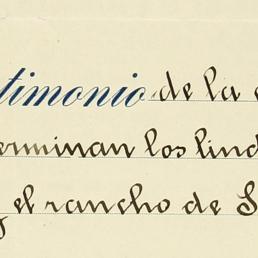 timonio de la
erminan los lind
el rancho de S